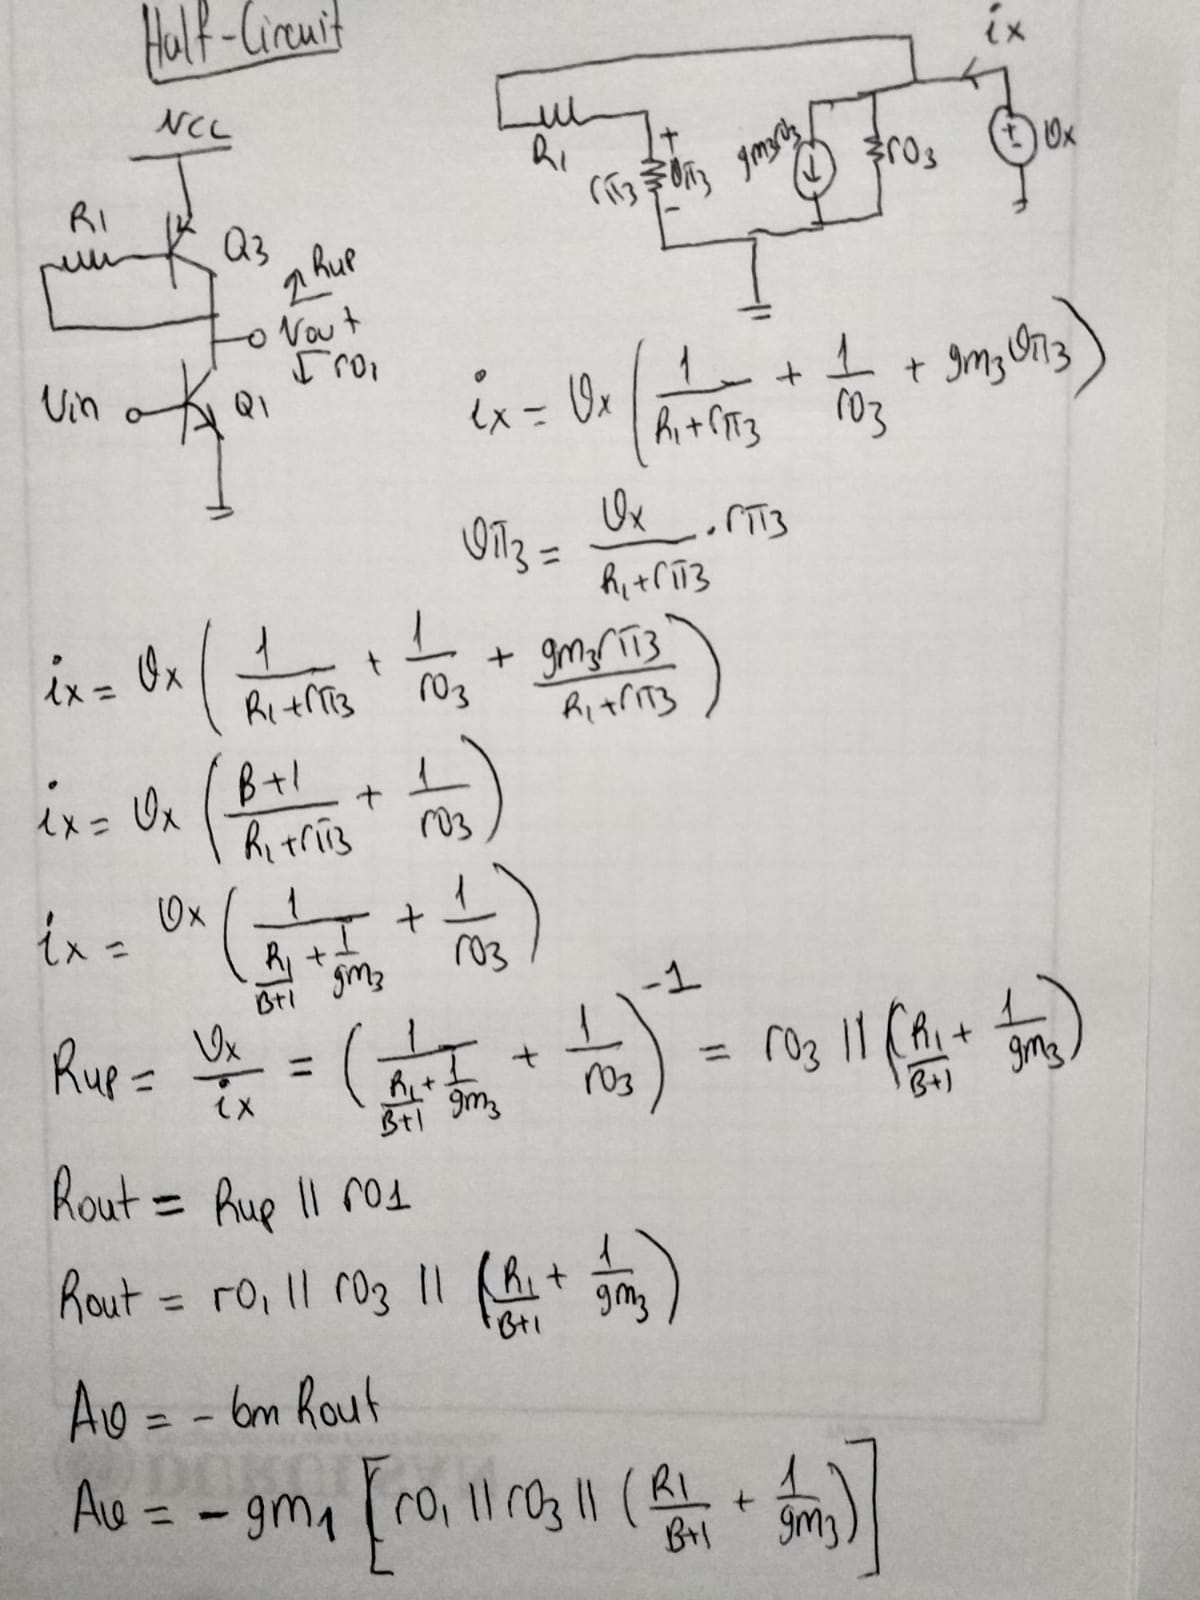 Half-Circuit
VCC
R1
Q3
Rup
Vout
ro1
Vin
Q1
ix
R1
+
rπ3
vπ3
-
gm3vπ3
ro3
+
-
vx
ix = vx ( 1/(R1+rπ3) + 1/ro3 + gm3vπ3 )
vπ3 = vx/(R1+rπ3) . rπ3
ix = vx ( 1/(R1+rπ3) + 1/ro3 + gm3rπ3/(R1+rπ3) )
ix = vx ( (B+1)/(R1+rπ3) + 1/ro3 )
ix = vx ( 1/(R1/(B+1) + 1/gm3) + 1/ro3 )
Rup = vx/ix = ( 1/(R1/(B+1) + 1/gm3) + 1/ro3 )^-1 = ro3 || ( R1/(B+1) + 1/gm3 )
Rout = Rup || ro1
Rout = ro1 || ro3 || ( R1/(B+1) + 1/gm3 )
Av = - Gm Rout
Av = - gm1 [ ro1 || ro3 || ( R1/(B+1) + 1/gm3 ) ]